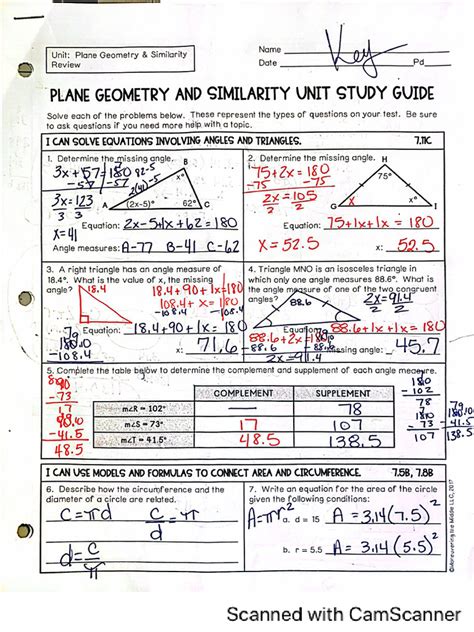 Unit: Plane Geometry & Similarity
Review
Name Key
Date Pd
PLANE GEOMETRY AND SIMILARITY UNIT STUDY GUIDE
Solve each of the problems below. These represent the types of questions on your test. Be sure
to ask questions if you need more help with a topic.
I CAN SOLVE EQUATIONS INVOLVING ANGLES AND TRIANGLES. 7.11C
1. Determine the missing angle.
B
3x + 57 = 180
-57 -57
3x = 123
3 3
x = 41
x°
A (2x-5)° 62° C
Equation: 2x-5+1x+62=180
Angle measures: A-77 B-41 C-62
2. Determine the missing angle.
H
75+2x=180
-75 -75
2x=105
2 2
75°
x°
G I
Equation: 75+1x+1x=180
X=52.5
x: 52.5
3. A right triangle has an angle measure of
18.4°. What is the value of x, the missing
angle?
18.4+90+1x=180
108.4+x=180
-108.4 -108.4
Equation: 18.4+90+1x=180
x: 71.6
4. Triangle MNO is an isosceles triangle in
which only one angle measures 88.6°. What is
the angle measure of one of the two congruent
angles?
2x=91.4
2 2
88.6
Equation: 88.6+1x+1x=180
88.6+2x=180
-88.6 -88.6
2x=91.4
Missing angle: 45.7
5. Complete the table below to determine the complement and supplement of each angle measure.
COMPLEMENT SUPPLEMENT
m∠R = 102° — 78
m∠S = 73° 17 107
m∠T = 41.5° 48.5 138.5
90
-73
17
-41.5
48.5
180
-102
78
-73
107
-41.5
138.5
I CAN USE MODELS AND FORMULAS TO CONNECT AREA AND CIRCUMFERENCE. 7.5B, 7.8B
6. Describe how the circumference and the
diameter of a circle are related.
C=πd C/d=π
d=C/π
7. Write an equation for the area of the circle
given the following conditions:
A=πr²
a. d = 15 A=3.14(7.5)²
b. r = 5.5 A=3.14(5.5)²
©Maneuvering the Middle LLC, 2017
Scanned with CamScanner